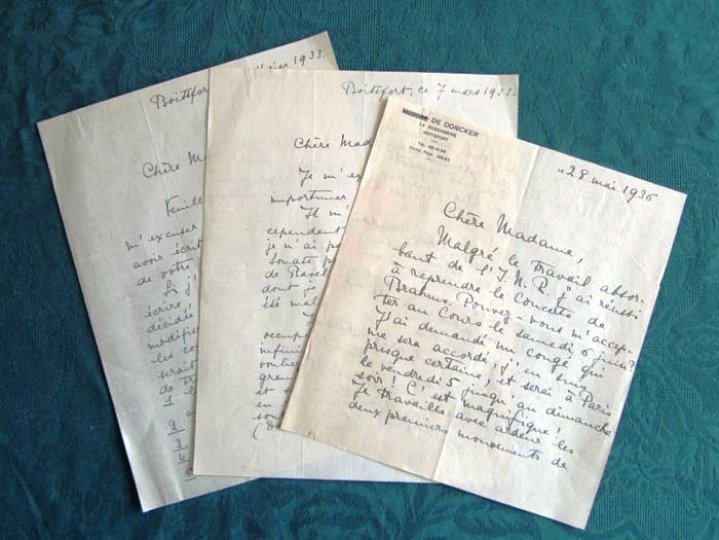 Boitsfort
février 1933.
Chère M
Veuille
m'excuser
avoir écrit
de votre
Si j'
écrire,
décidée
modifier
les co
serait
de tr
1
2
3
4
Boitsfort, ce 7 mars 1933.
Chère Mada
Je m'ex
importuner
Il m'
cependant
je n'ai pa
Sonate p
de Ravel
dont je
été mal
recupe
infini
gran
et s
en
son
DE DONCKER
BOITSFORT
28 mai 1936.
Chère Madame,
Malgré le travail absor-
bant de l'I.N.R. j'ai réussi
à reprendre le Concerto de
Brahms. Pouvez-vous m'accep-
ter au Cours le samedi 6 juin?
J'ai demandé un congé qui
me sera accordé, j'en suis
presque certaine, et serai à Paris
le vendredi 5 jusqu'au dimanche
soir! C'est magnifique!
Je travaille avec ardeur les
deux premiers mouvements de